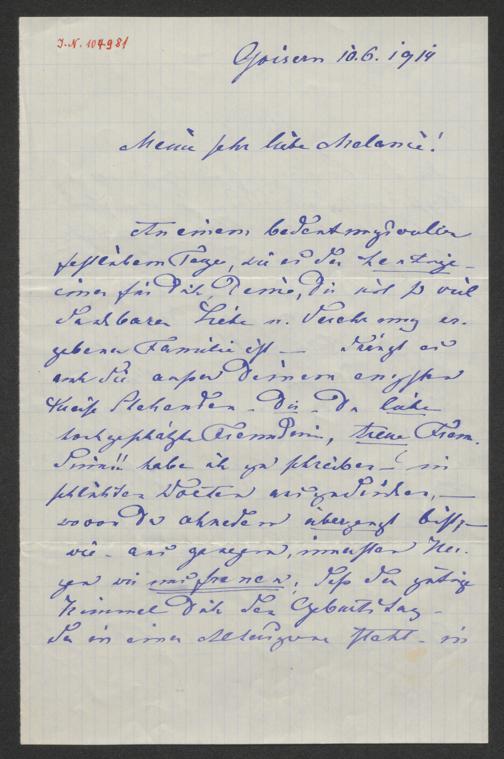 J.-N. 104981
Goisern 10.6. 1914
Meine sehr liebe Melanie!
An einem bedeutungsvollen
Tage, wie es der heutige
einer für Dich, Deine, Dir mit so viel
dankbarer Liebe u. Verehrung er-
gebenen Familie ist — drängt es
auch die außer Deinem engsten
Kreise Stehenden. Dir, Du liebe
hochgeschätzte Freundin, treue Freun-
din!! habe ich zu schreiben — in
schlichten Worten auszudrücken, —
wovon Du ohnedem überzeugt bist, —
wie aus ganzem, innersten Her-
zen wir uns freuen, daß der gütige
Himmel Dich den Geburtstag —
der in einer steht — in